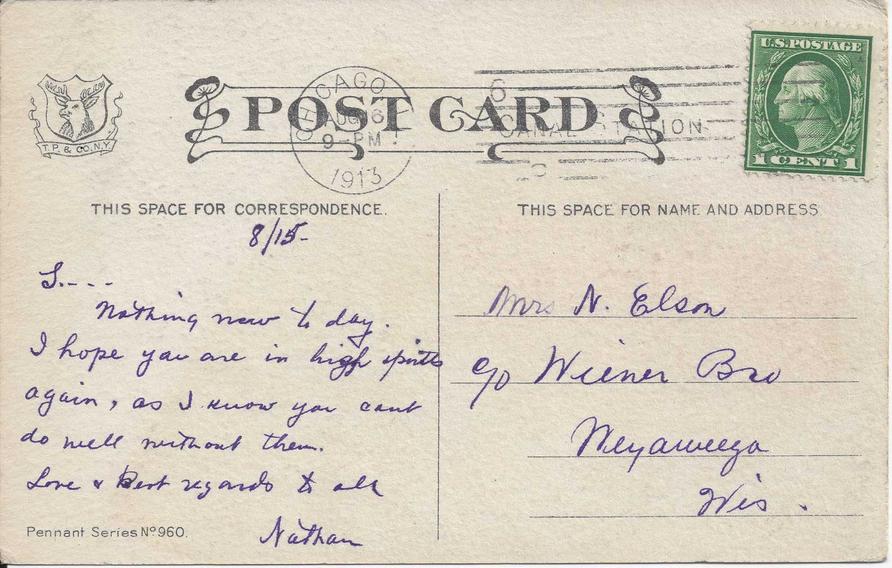 U.S. POSTAGE
1 CENT 1
CHICAGO
AUG 6
9 - PM
1913
6
CANAL STATION
POST CARD
T. P. & CO. N.Y.
THIS SPACE FOR CORRESPONDENCE.
8/15-
Nothing new to day.
I hope you are in high spirits
again, as I know you cant
do well without them.
Love & Best regards to all
Nathan
Pennant Series Nº 960.
THIS SPACE FOR NAME AND ADDRESS
Mrs N. Elson
c/o Wiener Bro
Weyauwega
Wis.